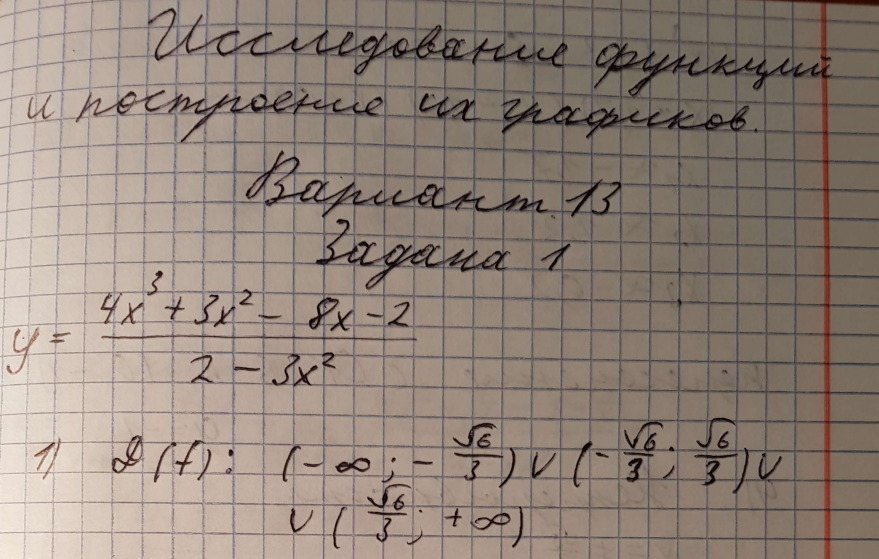 Исследование функций
и построение их графиков.
Вариант 13
Задача 1
y = (4x³ + 3x² - 8x - 2) / (2 - 3x²)
1) D(f): (-∞; -√6/3) ∪ (-√6/3; √6/3) ∪
∪ (√6/3; +∞)